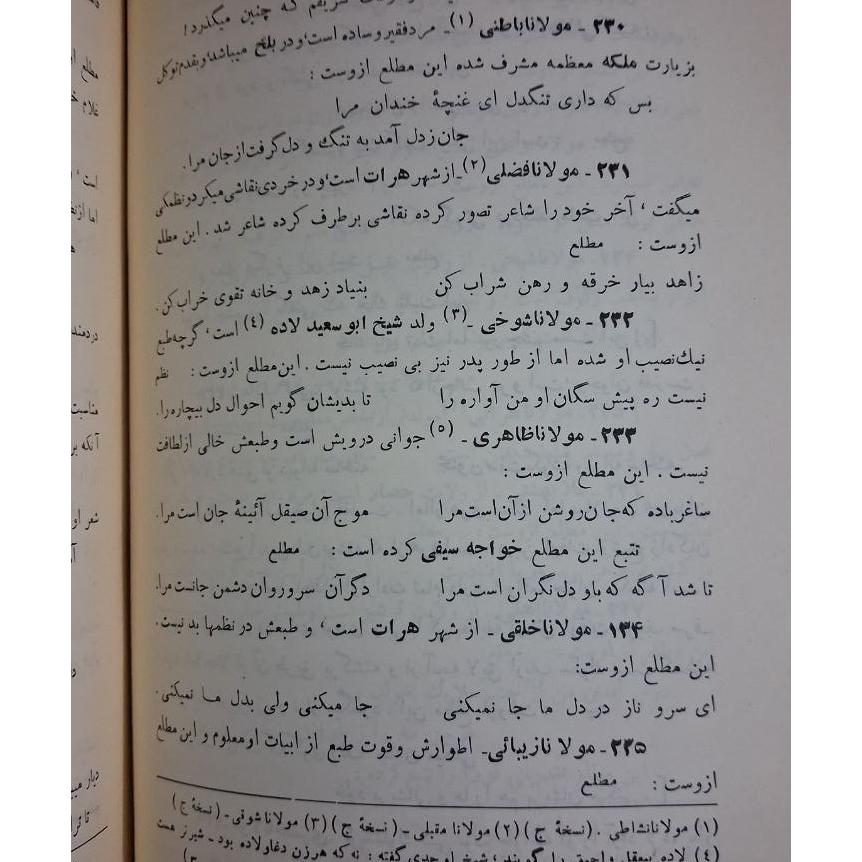 شریفم که چنین میگذرد!
۲۳۰ - مولاناباطنی (۱)- مرد فقیر و ساده است، و در بلخ میباشد، و بقدم توکل
بزیارت ملکه معظمه مشرف شده این مطلع ازوست :
بس که داری تنگدل ای غنچهٔ خندان مرا
جان زدل آمد به تنگ و دل گرفت از جان مرا .
۲۳۱ - مولانافضلی (۲)- از شهر هرات است، و در خردی نقاشی میکرد و نظمکی
میگفت ، آخر خود را شاعر تصور کرده نقاشی برطرف کرده شاعر شد . این مطلع
ازوست : مطلع
زاهد بیار خرقه و رهن شراب کن بنیاد زهد و خانه تقوی خراب کن .
۲۳۲ - مولاناشوخی -(۳) ولد شیخ ابو سعید لاده (۴) است، گرچه طبع
نیك نصیب او شده اما از طور پدر نیز بی نصیب نیست . این مطلع ازوست : نظم
نیست ره پیش سگان او من آواره را تا بدیشان گویم احوال دل بیچاره را.
۲۳۳ - مولاناظاهری - (۵) جوانی درویش است وطبعش خالی ازلطافت
نیست . این مطلع ازوست :
ساغر باده که جان روشن از آن است مرا موج آن صیقل آئینهٔ جان است مرا.
تتبع این مطلع خواجه سیفی کرده است : مطلع
تا شد آ گه که باو دل نگران است مرا دگر آن سروروان دشمن جانست مرا.
۱۳۴- مولاناخلقی - از شهر هرات است ، و طبعش در نظمها بد نیست .
این مطلع ازوست:
ای سرو ناز در دل ما جا نمیکنی جا میکنی ولی بدل ما نمیکنی .
۲۳۵ - مولا نازیبائی- اطوارش وقوت طبع از ابیات او معلوم و این مطلع
ازوست : مطلع
(۱) مولانانشاطی . (نسخهٔ ج ) (۲) مولانا مقبلی - (نسخهٔ ج ) (۳) مولاناشوقی - (نسخهٔ ج )
(۴) لاده بیعقل واحمق را گویند ، شیخ اوحدی گفته : نه که هرزن دغاولاده بود - شیرنر هست